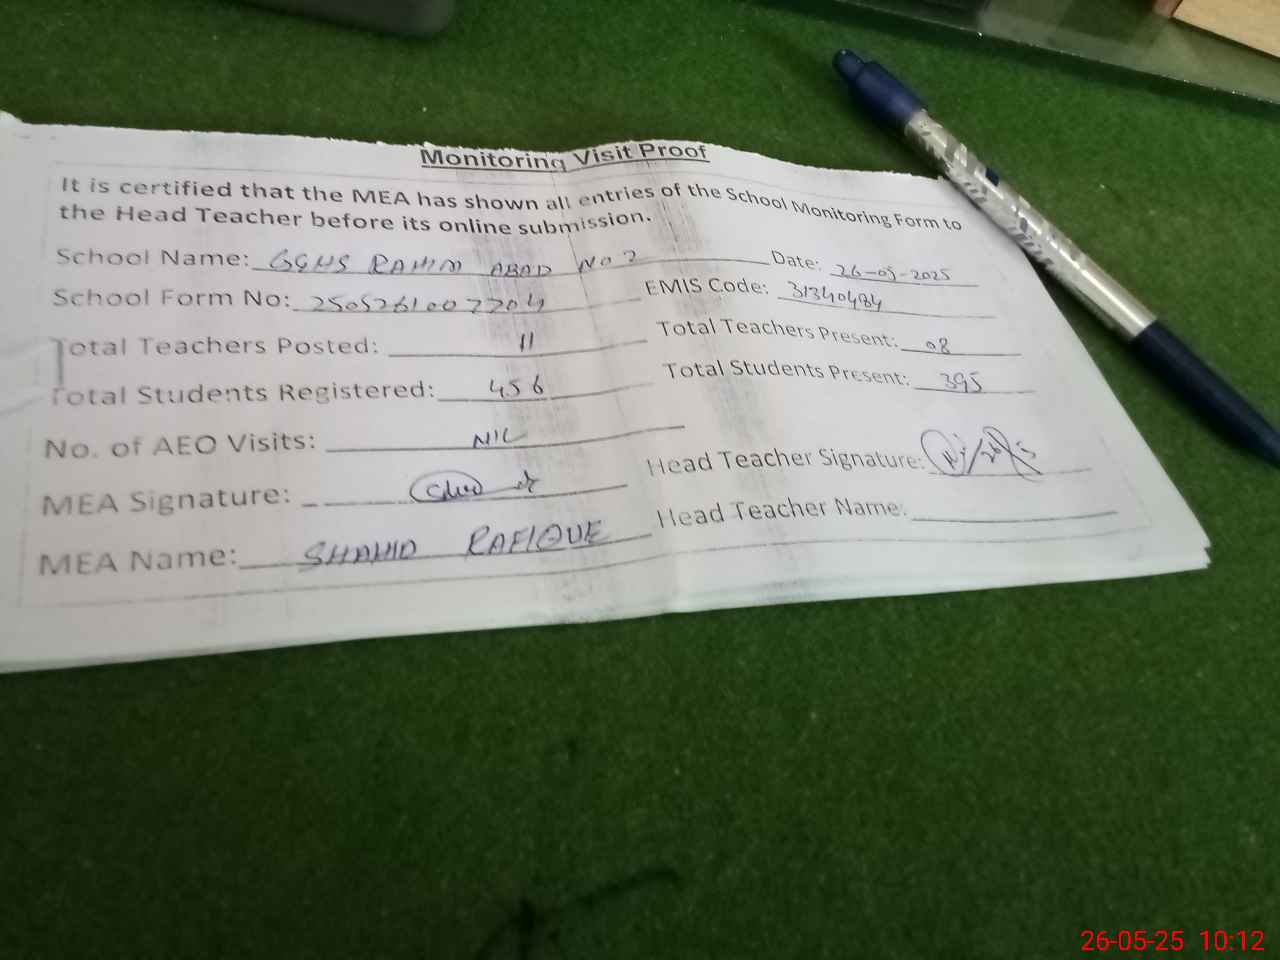 Monitoring Visit Proof
It is certified that the MEA has shown all entries of the School Monitoring Form to
the Head Teacher before its online submission.
School Name: GGHS RAHIM ABAD NO 2 Date: 26-05-2025
School Form No: 2505261007704 EMIS Code: 31340484
Total Teachers Posted: 11 Total Teachers Present: 08
Total Students Registered: 456 Total Students Present: 395
No. of AEO Visits: NIL
MEA Signature: Head Teacher Signature:
MEA Name: SHAHID RAFIQUE Head Teacher Name:
26-05-25 10:12